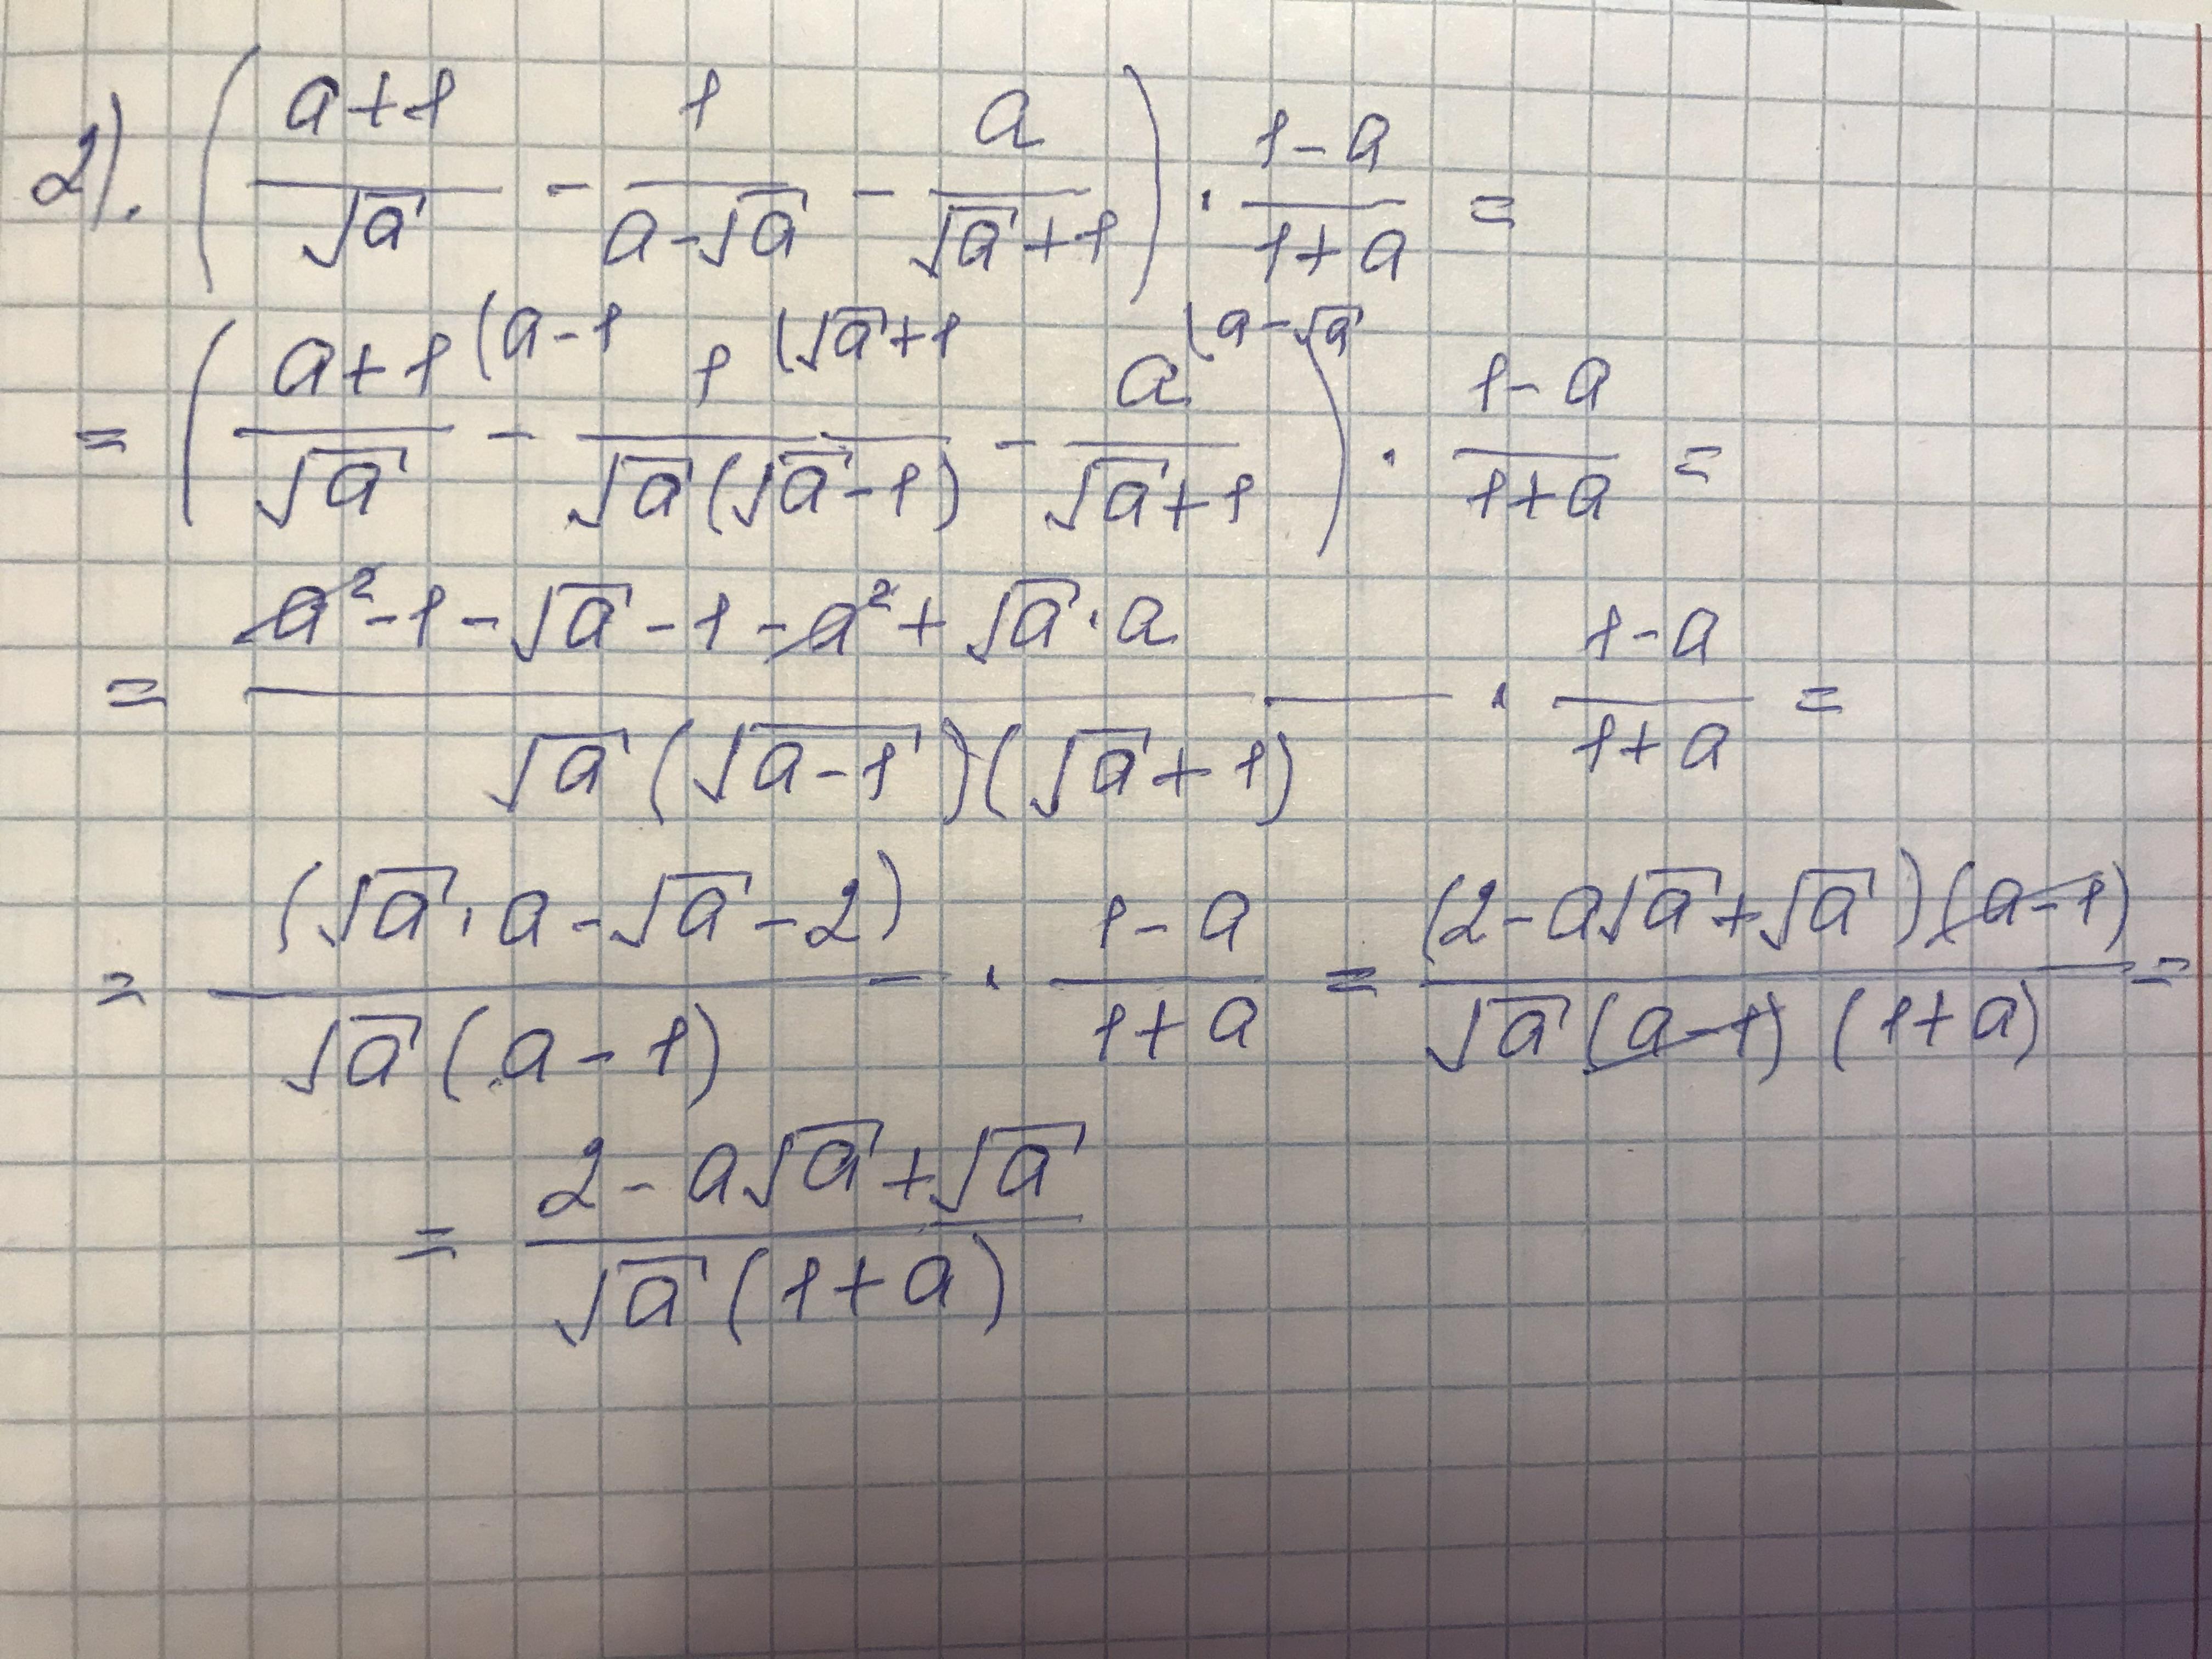 2). ( (a+1)/√a - 1/(a-√a) - a/(√a+1) ) · (1-a)/(1+a) =
= ( (a+1)/√a (a-1 - 1/(√a(√a-1)) (√a+1 - a/(√a+1) (a-√a ) · (1-a)/(1+a) =
= (a²-1-√a-1-a²+√a·a)/(√a(√(a-1))(√a+1)) · (1-a)/(1+a) =
= (√a·a-√a-2)/(√a(a-1)) · (1-a)/(1+a) = ((2-a√a+√a)(a-1))/(√a(a-1)(1+a)) =
= (2-a√a+√a)/(√a(1+a))